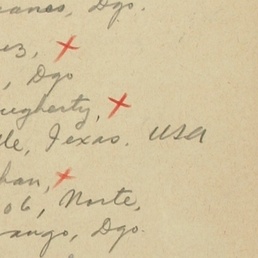 anes, Dgo.
ez, x
, Dgo
ugherty, x
lle, Texas. USA
han, x
06, Norte,
ango, Dgo.